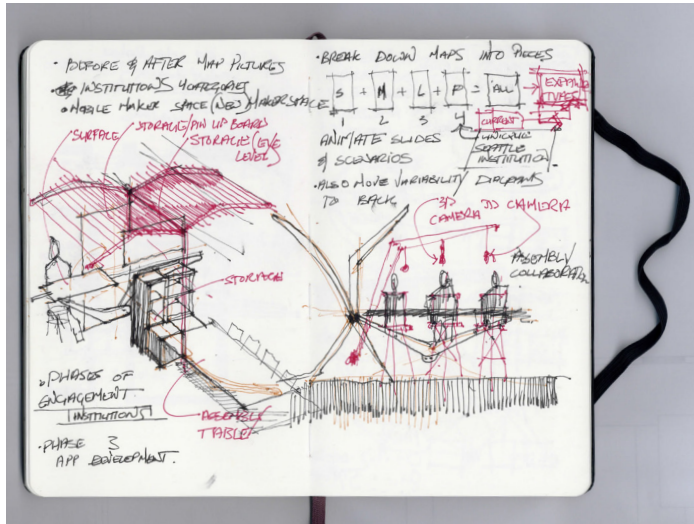 · BEFORE & AFTER MAP PICTURES
· INSTITUTIONS 4 CATEGORIES
· MOBILE MAKER SPACE (NEW) MAKERSPACE
SURFACE
STORAGE/PIN UP BOARD
STORAGE/EYE
LEVEL
STORAGE
· PHASES OF
ENGAGEMENT
INSTITUTIONS
ASSEMBLY
TABLE
· PHASE 3
APP DEVELOPMENT.
· BREAK DOWN MAPS INTO PIECES
S + M + L + F = ALL
EXPAND
TYPES
1 2 3 4
CURRENT
UNIQUE
SEATTLE
INSTITUTION
ANIMATE SLIDES
& SCENARIOS
· ALSO MOVE VARIABILITY DIAGRAMS
TO BACK
3D
CAMERA
3D CAMERA
ASSEMBLY